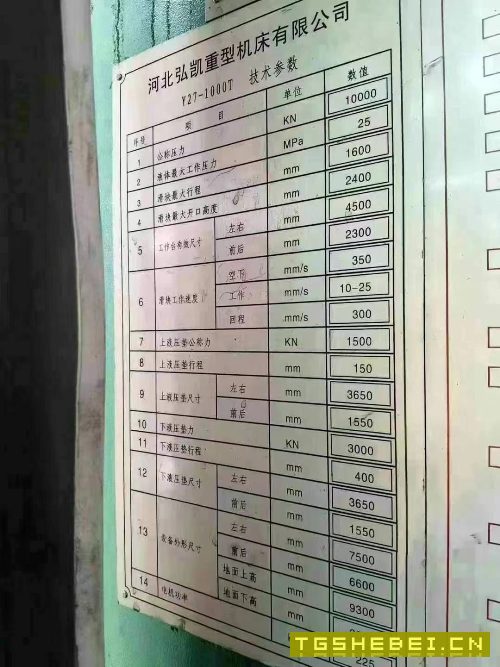 河北弘凯重型机床有限公司
Y27-1000T 技术参数
序号 项目 单位 数值
1 公称压力 KN 10000
2 液体最大工作压力 MPa 25
3 滑块最大行程 mm 1600
4 滑块最大开口高度 mm 2400
5 工作台有效尺寸 左右 mm 4500
前后 mm 2300
6 滑块工作速度 空下 mm/s 350
工作 mm/s 10-25
回程 mm/s 300
7 上液压垫公称力 KN 1500
8 上液压垫行程 mm 150
9 上液压垫尺寸 左右 mm 3650
前后 mm 1550
10 下液压垫力 KN 3000
11 下液压垫行程 mm 400
12 下液压垫尺寸 左右 mm 3650
前后 mm 1550
13 装备外形尺寸 左右 mm 7500
前后 mm 6600
地面上高 mm 9300
地面下高 mm
14 电机功率 225
TGSHEBEI.CN